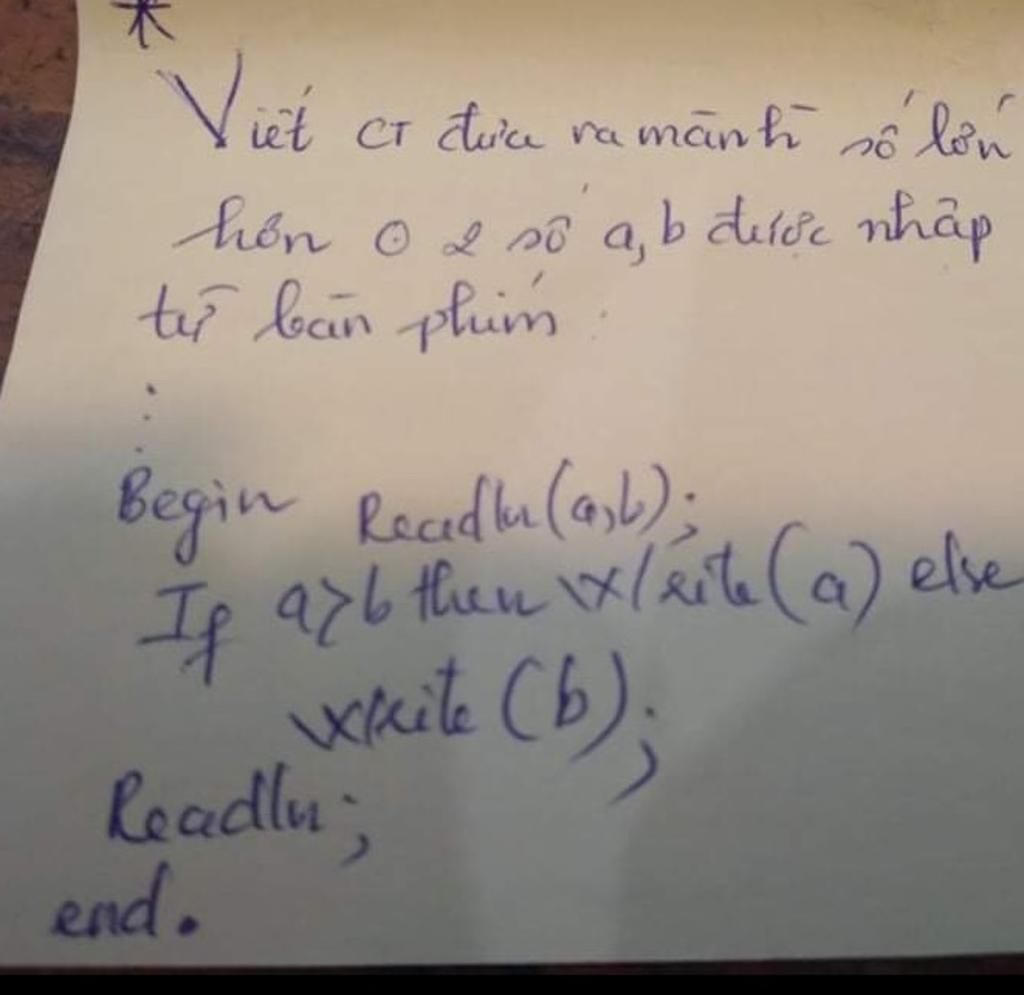 *
Viết CT đưa ra màn hì số lớn
hơn ở 2 số a, b được nhập
từ bàn phím :
:
Begin Readln(a,b);
If a>b then Write(a) else
write (b);
Readln;
end.